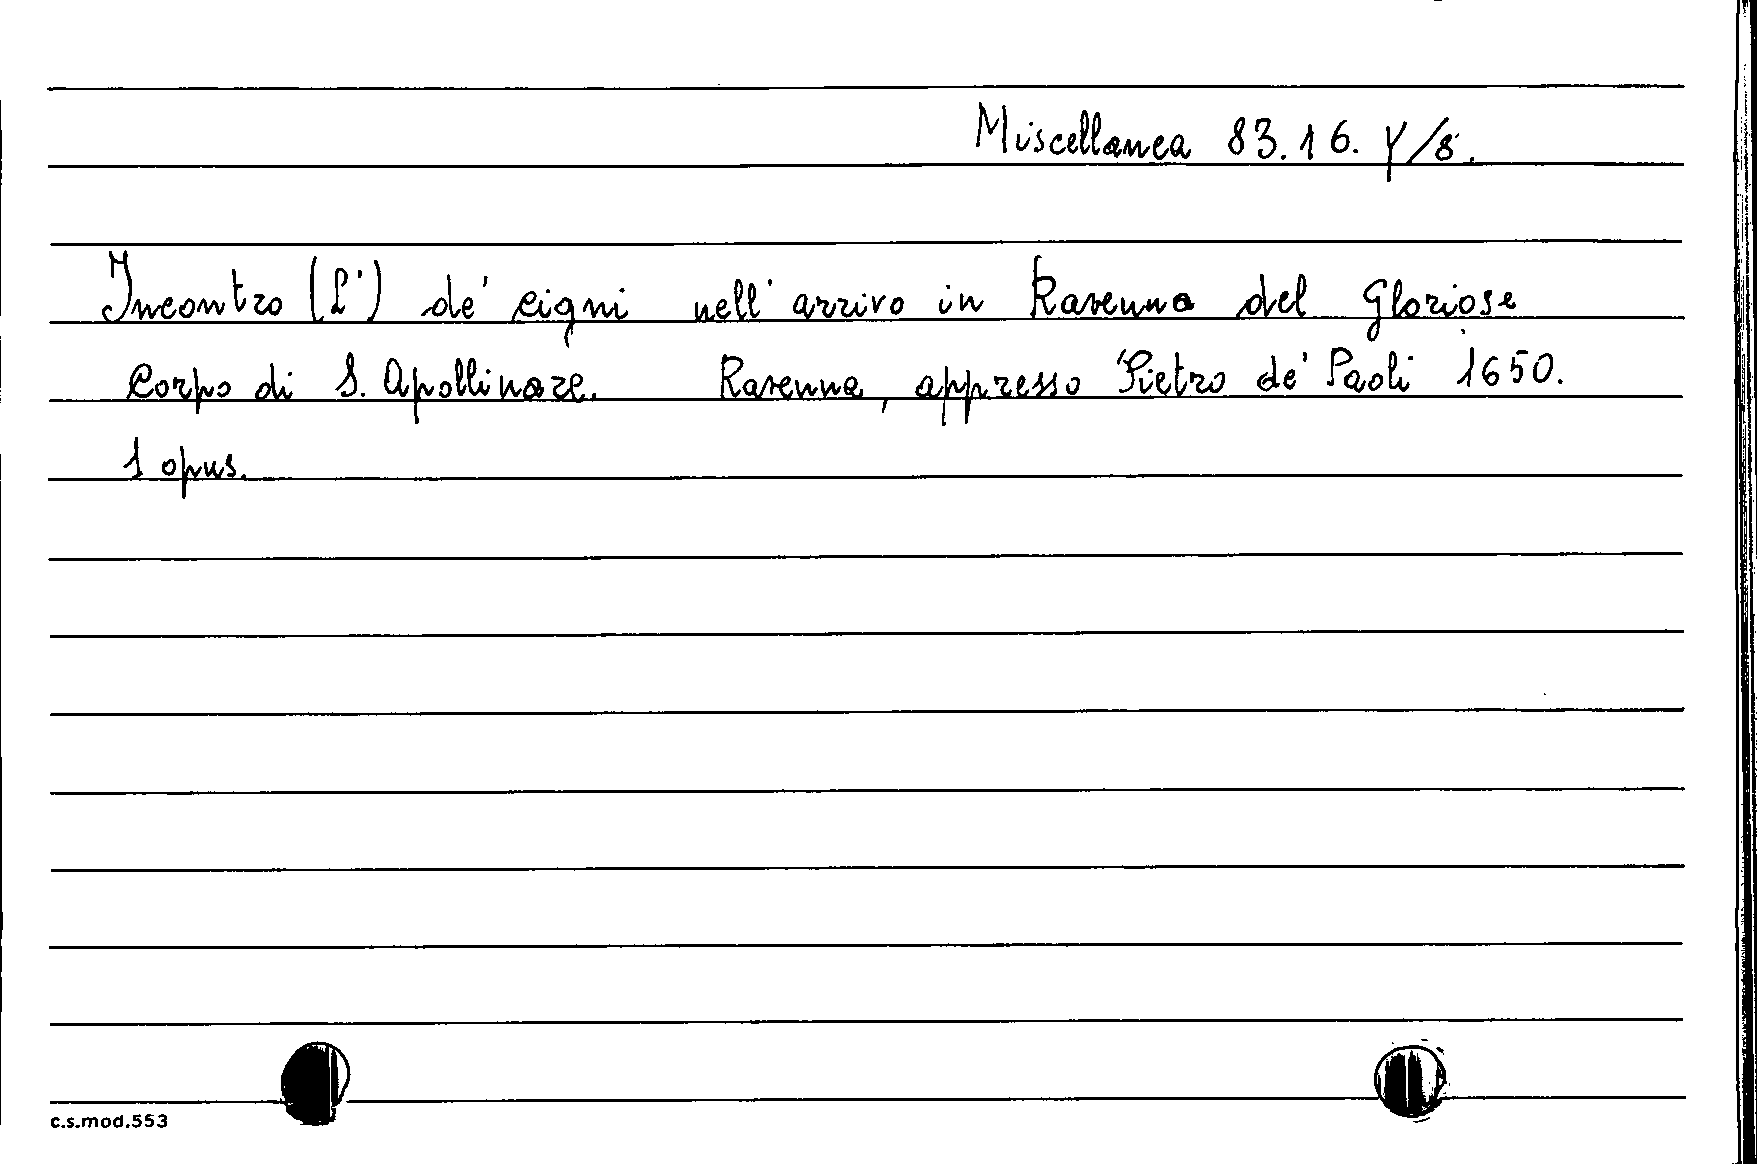 Miscellanea 83.16. Y/8.
Incontro (L') de' cigni nell' arrivo in Ravenna del Glorioso
Corpo di S. Apollinare. Ravenna, appresso Pietro de' Paoli 1650.
1 opus.
c.s.mod.553